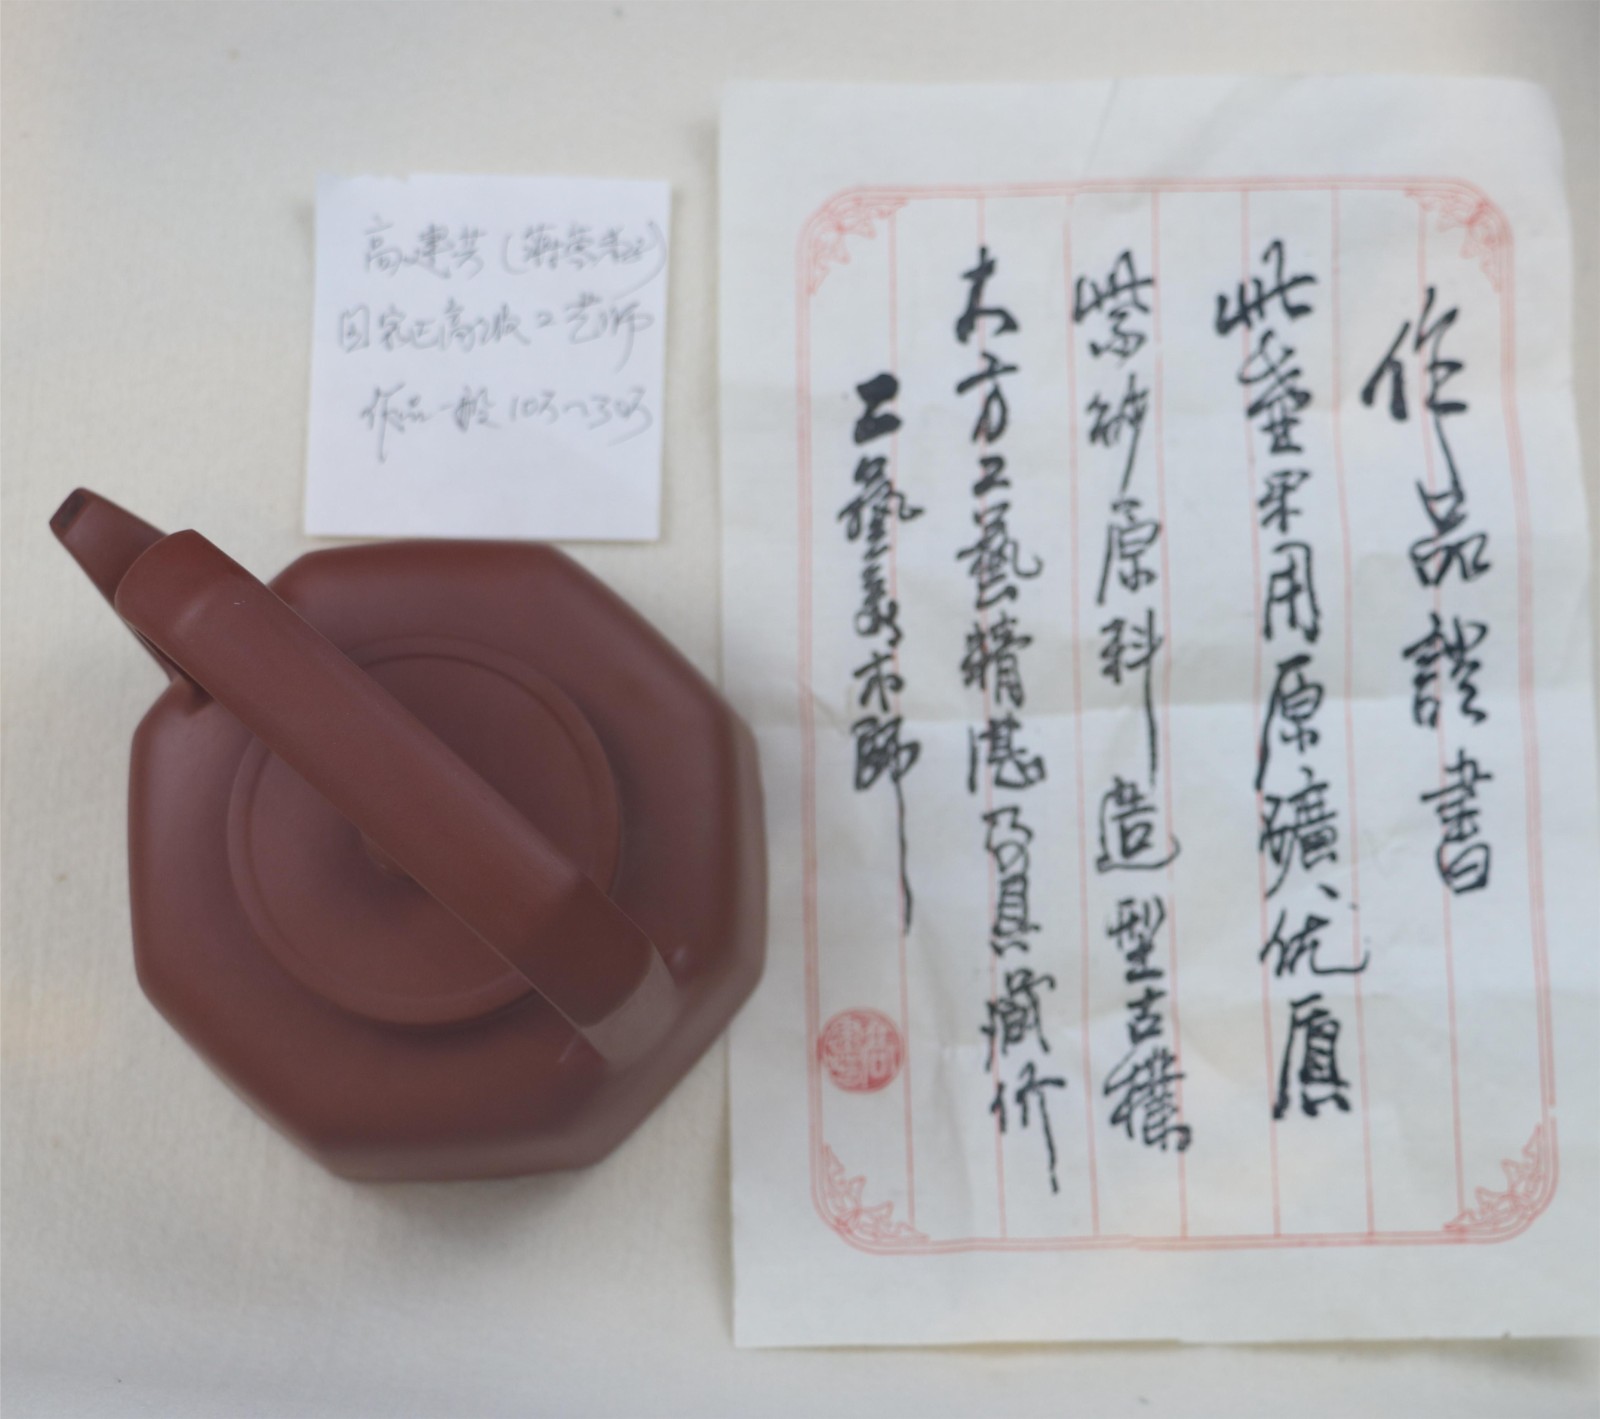 高建芳（蒋蓉
国家正高级工艺师
作品一般10万～30万
作品證書
此壶采用原礦优质
紫砂原料造型古樸
大方工藝精湛乃具藏价
工藝美术師